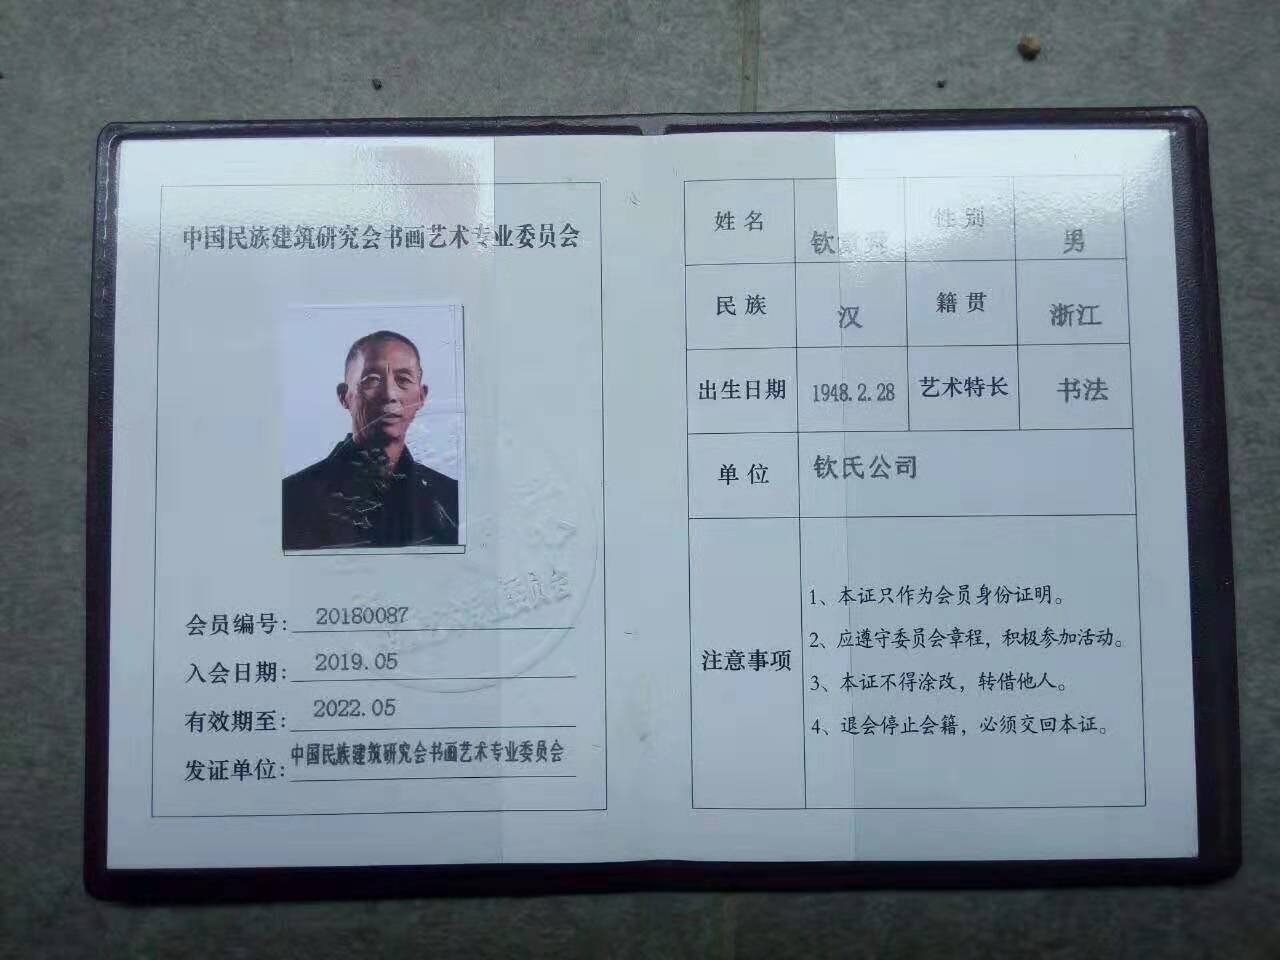 中国民族建筑研究会书画艺术专业委员会
会员编号: 20180087
入会日期: 2019.05
有效期至: 2022.05
发证单位: 中国民族建筑研究会书画艺术专业委员会
姓名 钦 性别 男
民族 汉 籍贯 浙江
出生日期 1948.2.28 艺术特长 书法
单位 钦氏公司
注意事项
1、本证只作为会员身份证明。
2、应遵守委员会章程，积极参加活动。
3、本证不得涂改，转借他人。
4、退会停止会籍，必须交回本证。